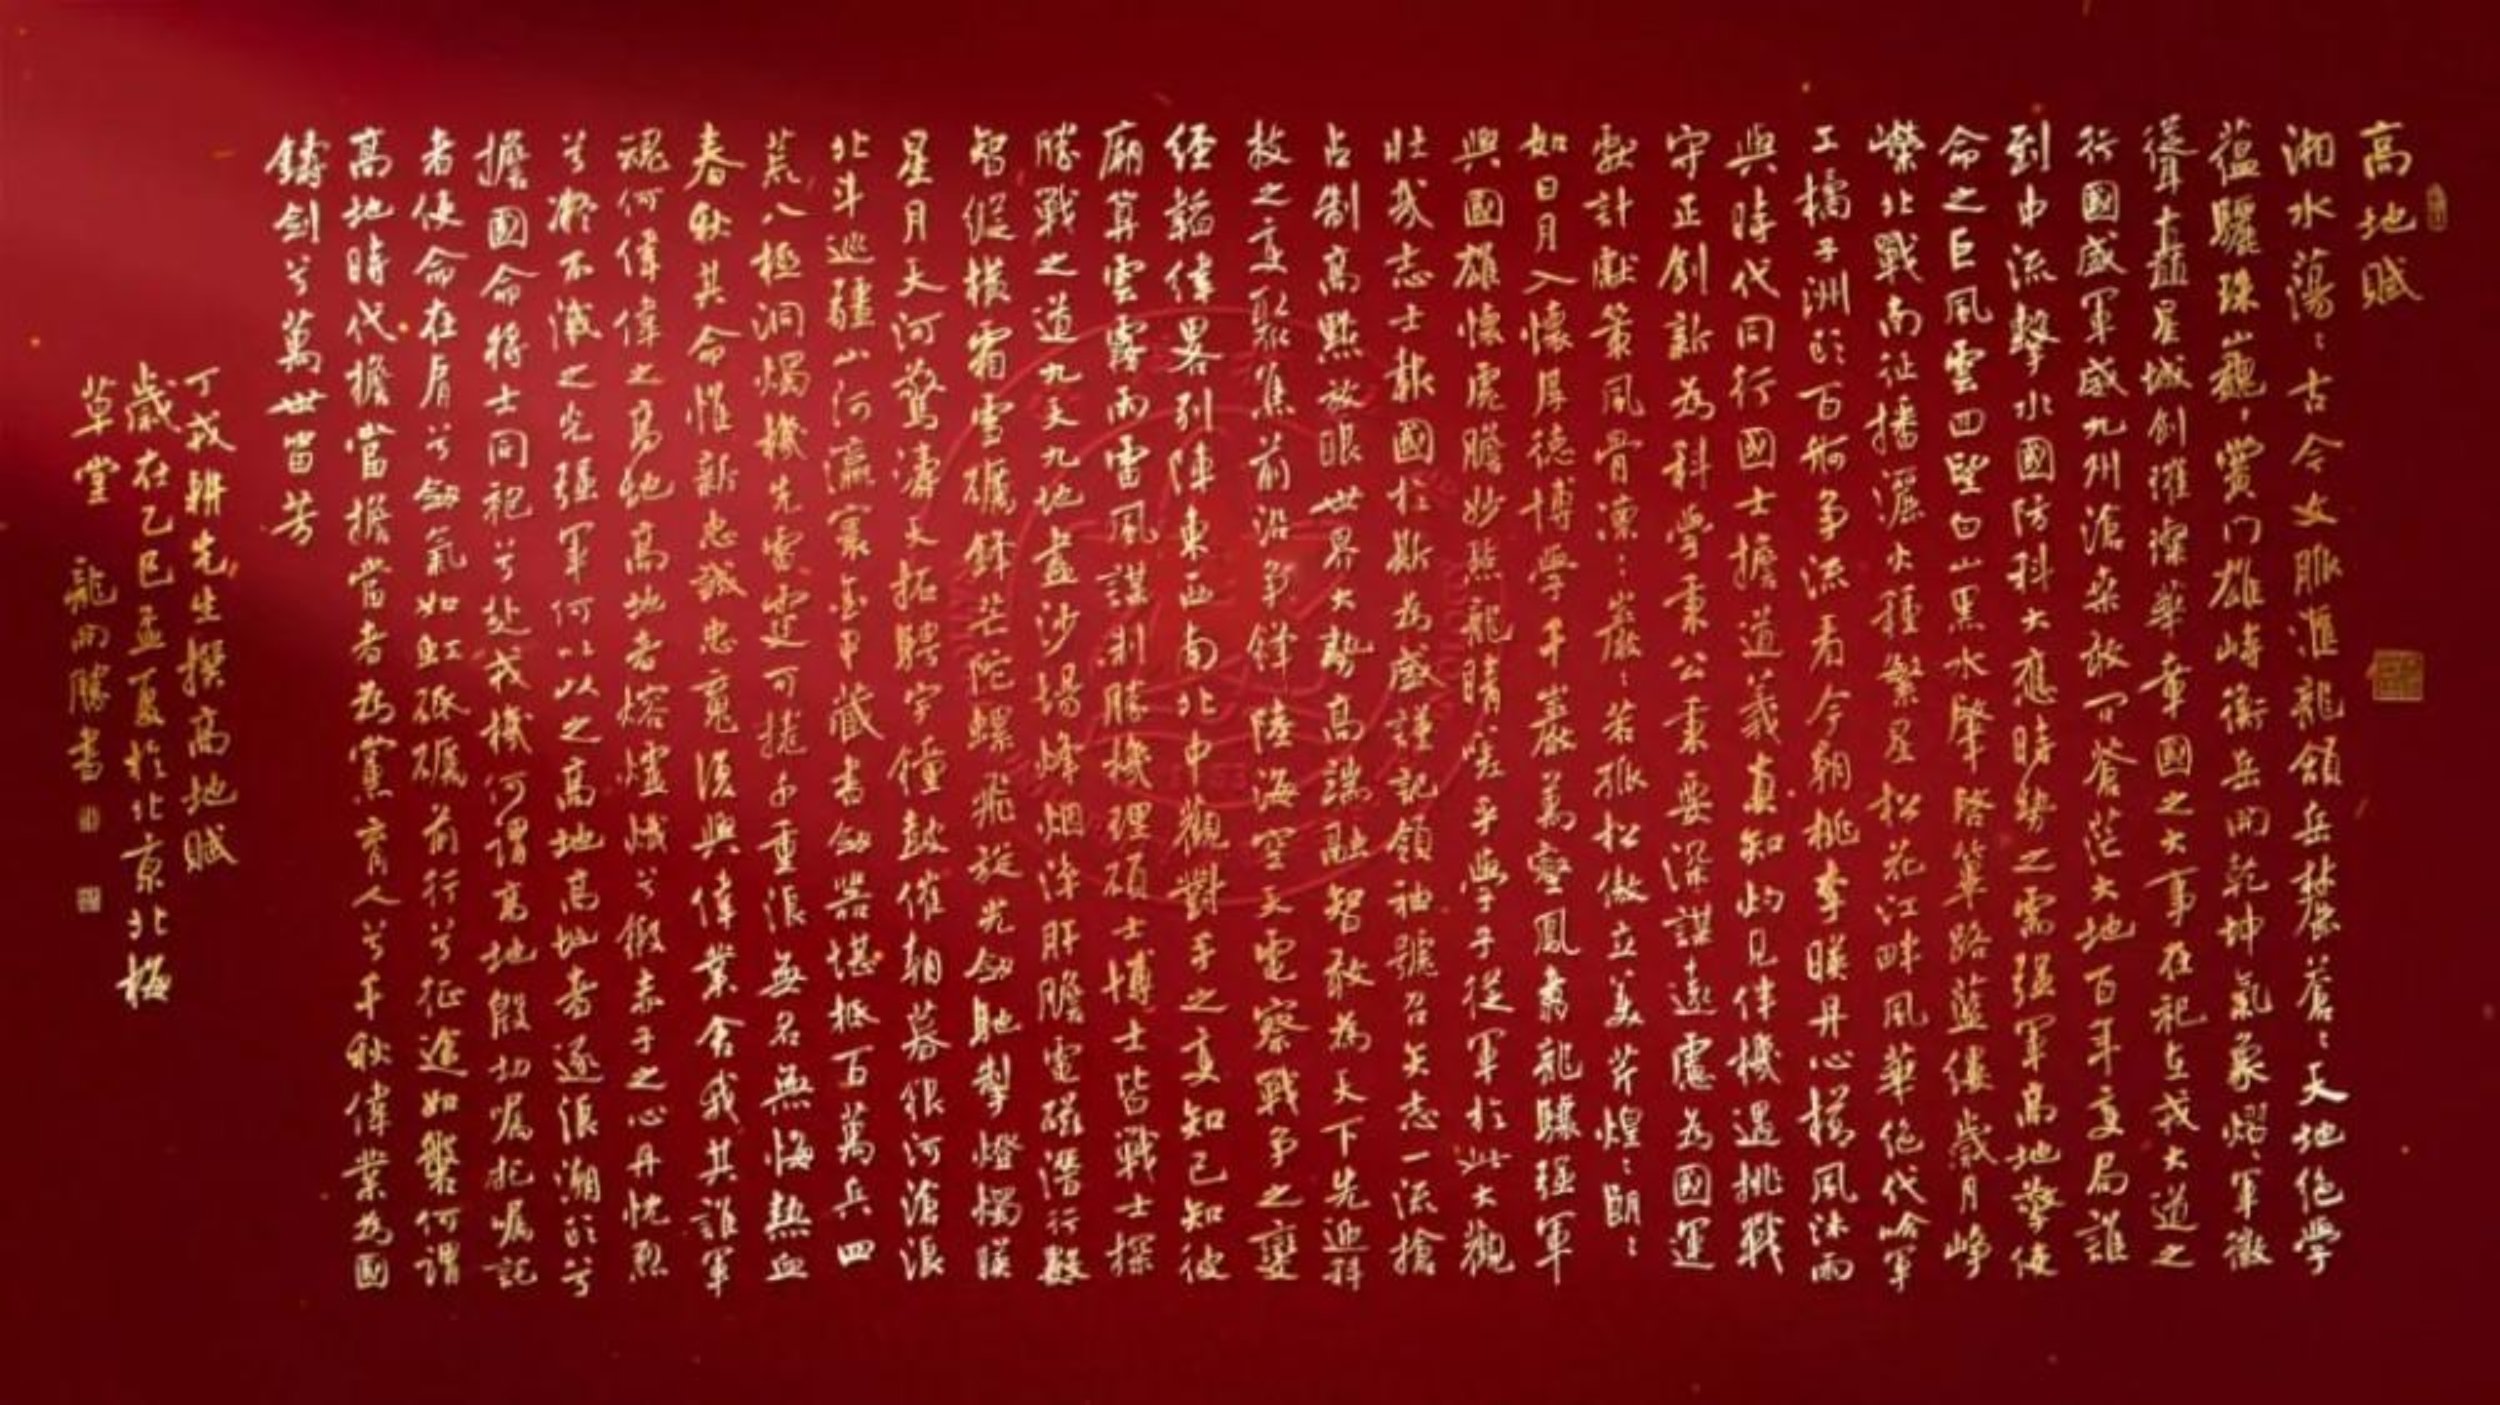 高地賦
湘水蕩ミ古今文脈滙龍領岳麓蒼ミ天地绝學
蘊驪珠巍ミ黌门雄峙衡岳開乾坤氣象熠ミ軍徽
聳矗星城創璀璨華章國之大事在祀与戎大道之
行國盛軍威九州滄桑敢问蒼茫大地百年变局誰
到中流擊水國防科大應時势之需强軍高地擎使
命之巨風雲四望白山黑水肇啓篳路藍縷歲月峥
嶸北戰南征播灑火種繁星松花江畔風華绝代哈軍
工橘子洲头百舸争流看今朝桃李暎丹心櫛風沐雨
與時代同行國士擔道義真知灼見伴機遇挑戰
守正創新為科学秉公秉要深謀遠慮為國運
獻計獻策風骨凛ミ巖ミ若孤松傲立美芹煌ミ朗ミ
如日月入懷厚德博學千巖萬壑鳳翥龍驤强軍
興國雄懷虎膽妙點龍睛美乎學子從軍於此大觀
壯哉志士報國於斯為盛謹記領袖號召矢志一流搶
占制高點放眼世界大勢高端融智敢為天下先迎科
技之变聚焦前沿争鋒陸海空天電察戰争之變
经韜偉畧列陣東西南北中觀對手之变知己知彼
廟算雲霧雨雷風謀制勝機理碩士博士皆戰士探
勝戰之道九天九地盡沙場烽烟淬肝膽電磁潛行數
智縱横霜雪礪鋒芒陀螺飛旋光劍馳掣燈燭暎
星月天河驚濤天拓騁宇鐘鼓催朝暮银河滄浪
北斗巡疆山河瀛寰金甲藏書劍器堪抵百萬兵四
荒八極洞燭機先雷霆可挽千重浪無名無悔熱血
春秋其命惟新忠誠忠竟須與偉業舍我其誰軍
魂何偉偉之高地高地者熔爐熾兮鍛赤子之心丹忱烈
兮凝不滅之光强軍何以以之高地高地者逐浪潮头兮
擔國命将士同祀兮赴戎機何謂高地殷切嘱托嘱記
者使命在肩兮劍氣如虹砥礪前行兮征途如磐何謂
高地時代擔當擔當者為黨育人兮千秋偉業為國
鑄劍兮萬世留芳
丁戎耕先生撰高地賦
歲在乙巳孟夏於北京北極
草堂 龍開勝書